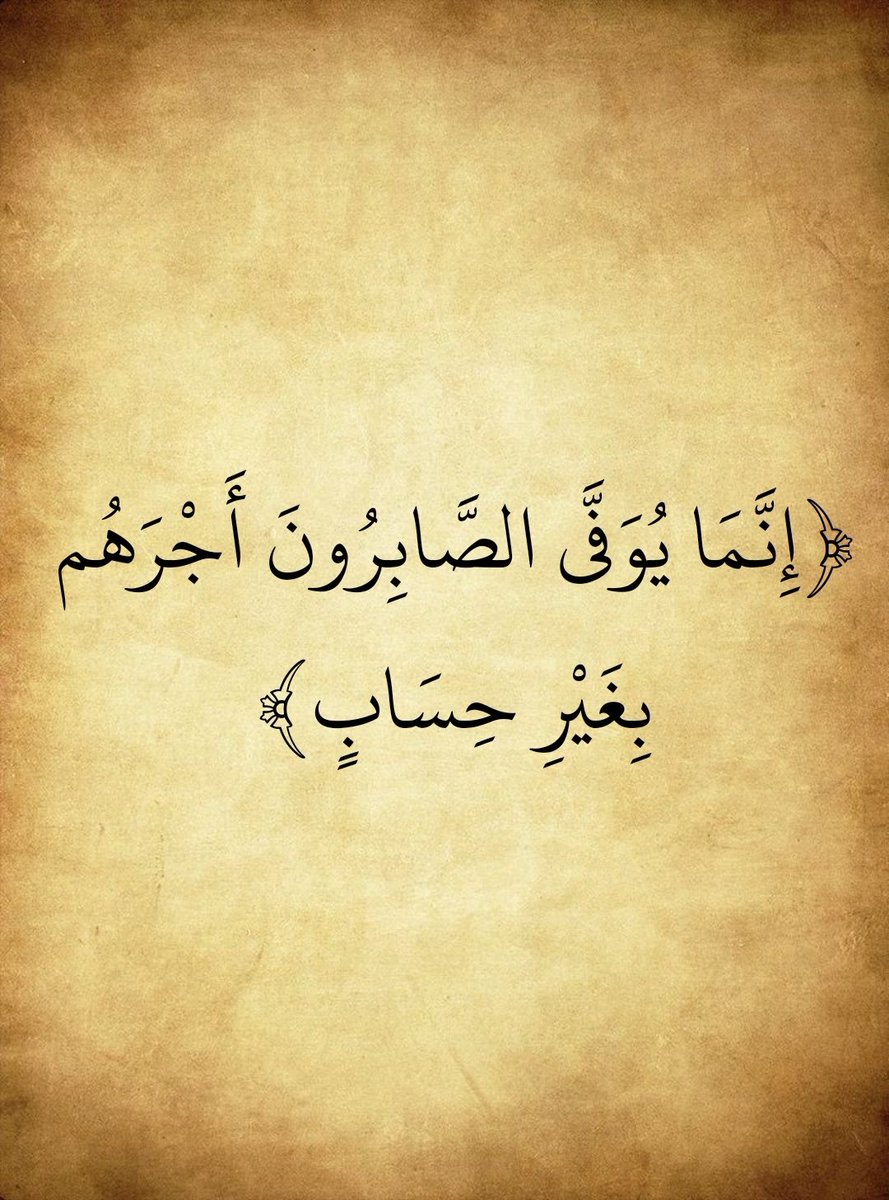 ﴿إِنَّمَا يُوَفَّى الصَّابِرُونَ أَجْرَهُم
بِغَيْرِ حِسَابٍ﴾